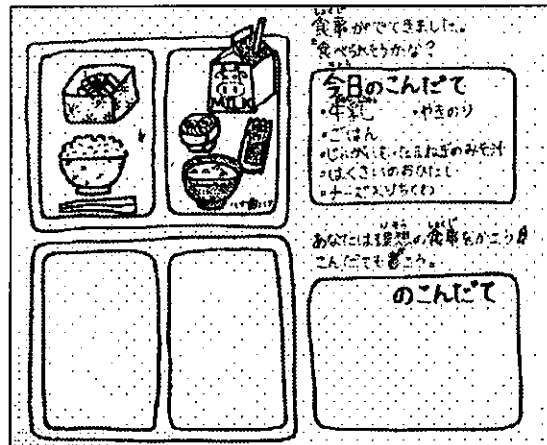 食事がでてきました。
食べられそうかな?
今日のこんだて
・牛乳 ・やきのり
・ごはん
・じゃがいも・たまねぎのみそ汁
・はくさいのおひたし
・チーズ入りちくわ
MILK
あなたは理想の食事をかこう
こんだても書こう。
のこんだて